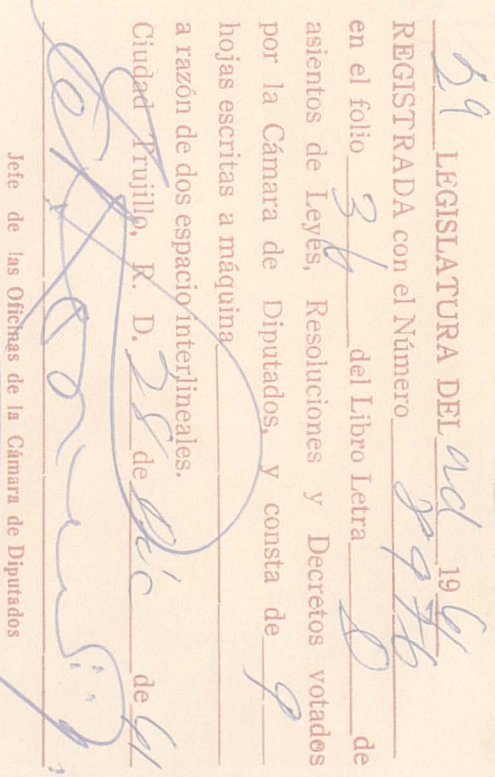 LEGISLATURA DEL 19
REGISTRADA con el Número 8976
en el folio 36 del Libro Letra de
asientos de Leyes, Resoluciones y Decretos votados
por la Cámara de Diputados, y consta de 9
hojas escritas a máquina
a razón de dos espacio interlineales.
Ciudad Trujillo, R. D. 28 de Dic de 61
Jefe de las Oficinas de la Cámara de Diputados